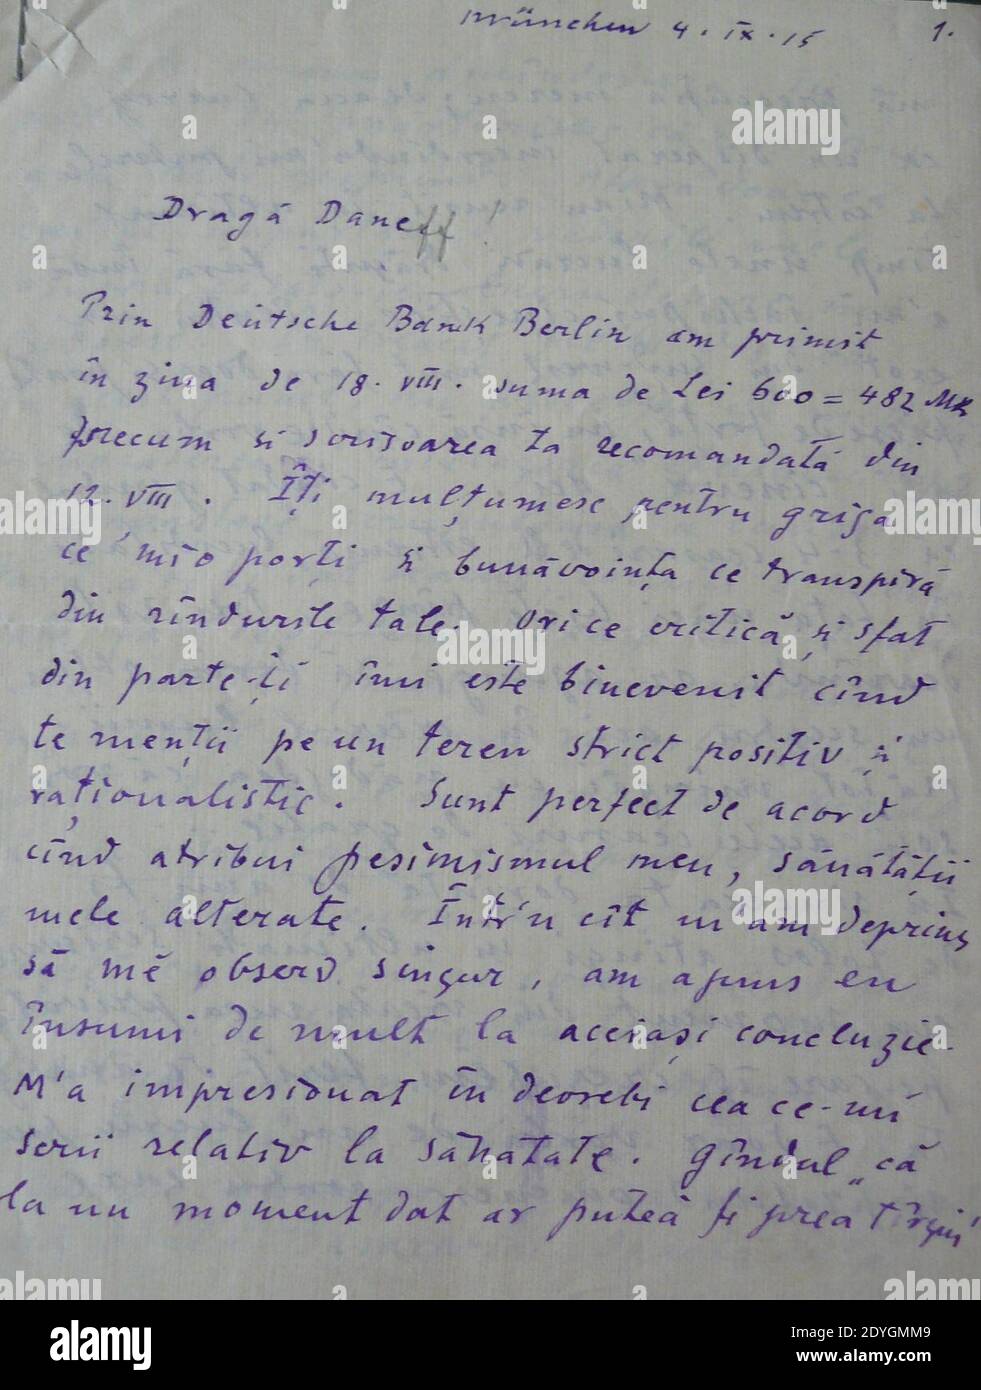 München 4.IX.15 1.
Dragă Daneff!
Prin Deutsche Bank Berlin am primit
în ziua de 18.VIII. suma de Lei 600 = 482 MK
precum si scrisoarea ta recomandată din
12.VIII. Îți mulțumesc pentru grija
ce mi-o porți și bunăvoința ce transpiră
din rîndurile tale. Orice critică și sfat
din parte-ți îmi este binevenit cînd
te menții pe un teren strict pozitiv și
raționalistic. Sunt perfect de acord
cînd atribui pesimismul meu, sănătății
mele alterate. Într'u cît m'am deprins
să mě observ singur, am ajuns eu
însumi de mult la aceiași concluzie.
M'a impresionat în deosebi ceace-mi
scrii relativ la sănătate. Gîndul „că
la un moment dat ar putea fi prea tîrziu"
a alamy
Image ID: 2DYGMM9
www.alamy.com